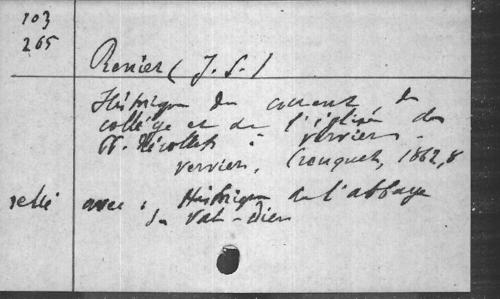 103
265
Renier (J.S.)
Historique du couvent, du
collège et de l'église des
PP. Récollets à Verviers.
Verviers, Crouquet, 1862, 8
relié avec : Historique de l'abbaye
du Val-Dieu